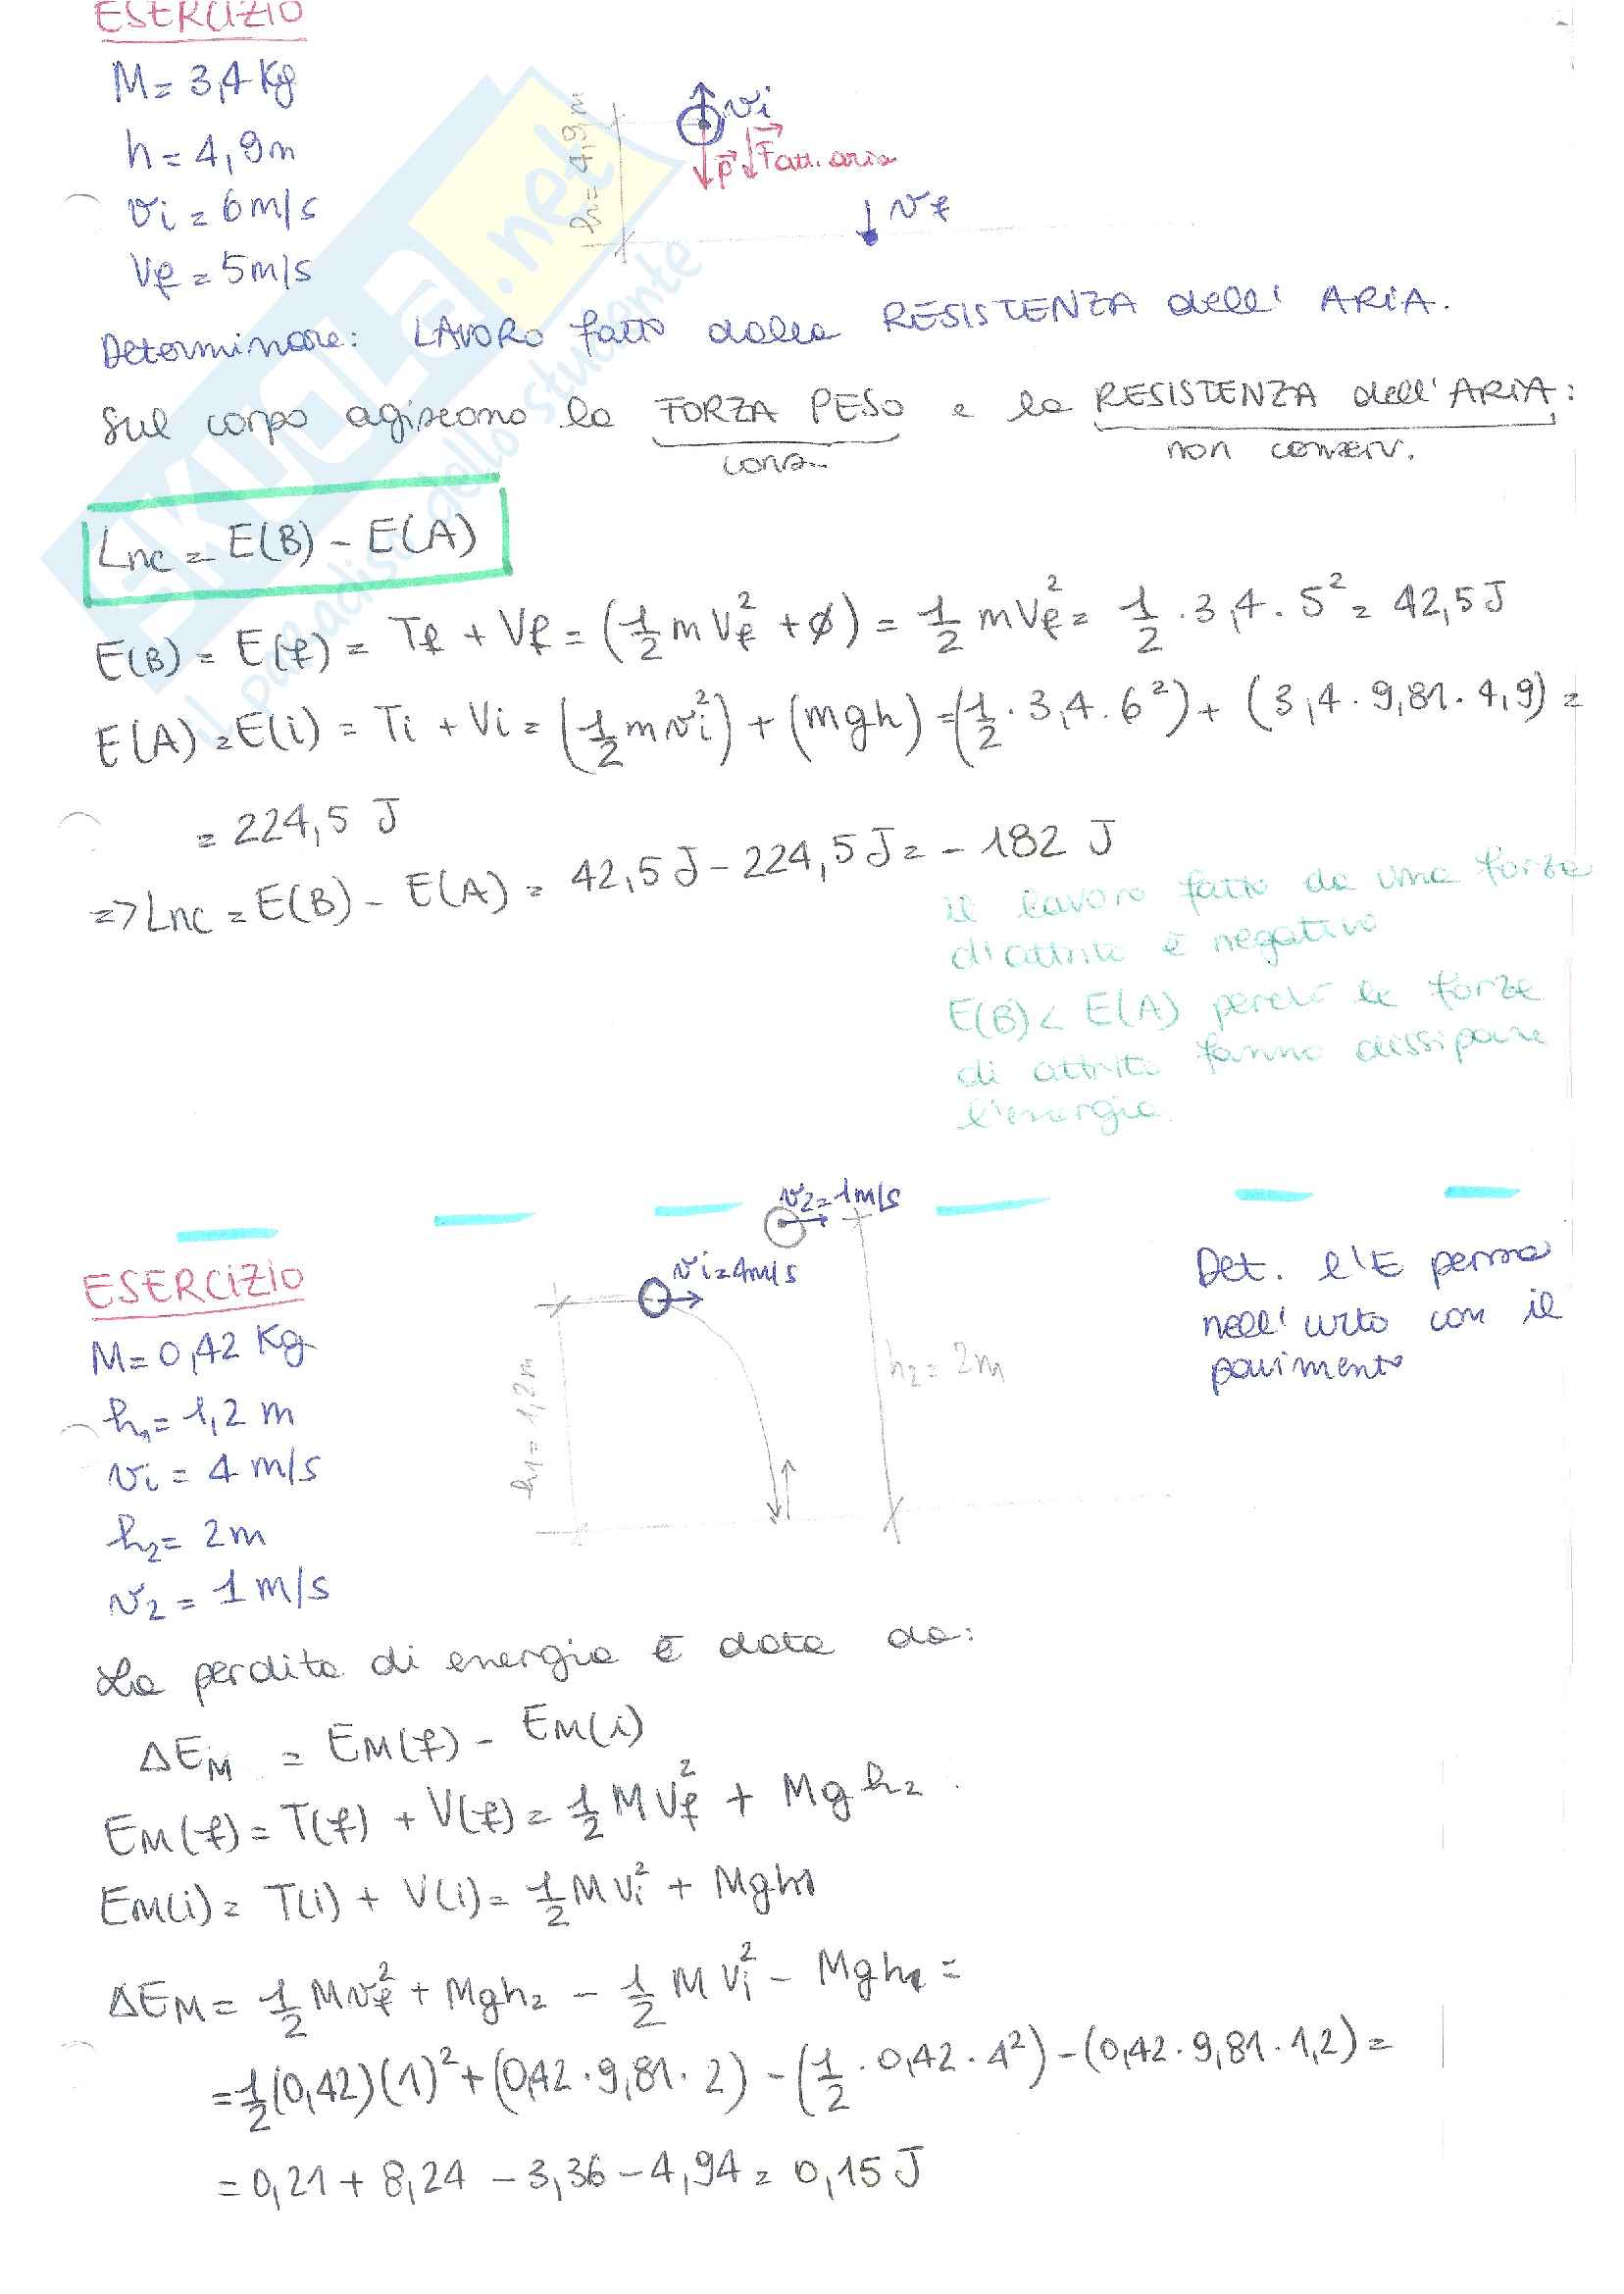 ESERCIZIO
M= 3,4 Kg
h= 4,9m
vi = 6m/s
Vf = 5m/s
h= 4,9 m
vi
P Fatt. aria
vf
Determinare: LAVORO fatto dalla RESISTENZA dell' ARIA.
Sul corpo agiscono la FORZA PESO e la RESISTENZA dell'ARIA:
cons. non conserv.
Lnc = E(B) - E(A)
E(B) = E(f) = Tf + Vf = (1/2 m Vf² + ø) = 1/2 m Vf² = 1/2 · 3,4 · 5² = 42,5 J
E(A) = E(i) = Ti + Vi = (1/2 m vi²) + (mgh) = (1/2 · 3,4 · 6²) + (3,4 · 9,81 · 4,9) =
= 224,5 J
=> Lnc = E(B) - E(A) = 42,5 J - 224,5 J = - 182 J
il lavoro fatto da una forza
di attrito è negativo
E(B) < E(A) perché le forze
di attrito fanno dissipare
l'energia.
SKUOLA.net
il paradiso dello studente
ESERCIZIO
M= 0,42 Kg
h1= 1,2 m
vi = 4 m/s
h2= 2m
v2 = 1 m/s
v2=1m/s
vi=4m/s
h1= 1,2m
h2= 2m
Det. l'E persa
nell' urto con il
pavimento
La perdita di energia è data da:
ΔEM = EM(f) - EM(i)
EM(f) = T(f) + V(f) = 1/2 M Vf² + Mg h2
EM(i) = T(i) + V(i) = 1/2 M Vi² + Mgh1
ΔEM = 1/2 M vf² + Mgh2 - 1/2 M Vi² - Mgh1 =
= 1/2 (0,42)(1)² + (0,42 · 9,81 · 2) - (1/2 · 0,42 · 4²) - (0,42 · 9,81 · 1,2) =
= 0,21 + 8,24 - 3,36 - 4,94 = 0,15 J